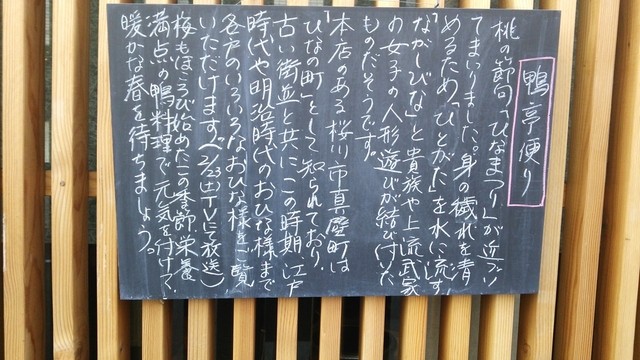 鴨亭便り
桃の節句「ひなまつり」が近づい
てまいりました。身の穢れを清
めるため「ひとがた」を水に流す「
ながしびな」と貴族や上流武家
の女子の人形遊びが結び付いた
ものだそうです。
本店のある桜川市真壁町は
「ひなの町」として知られており、
古い街並と共にこの時期、江戸
時代や明治時代のおひな様まで
各戸のいろいろなおひな様をご覧
いただけます。(2/23(土)TVにて放送)
梅もほころび始めたこの季節、栄養
満点の鴨料理で元気を付けて、
暖かな春を待ちましょう。